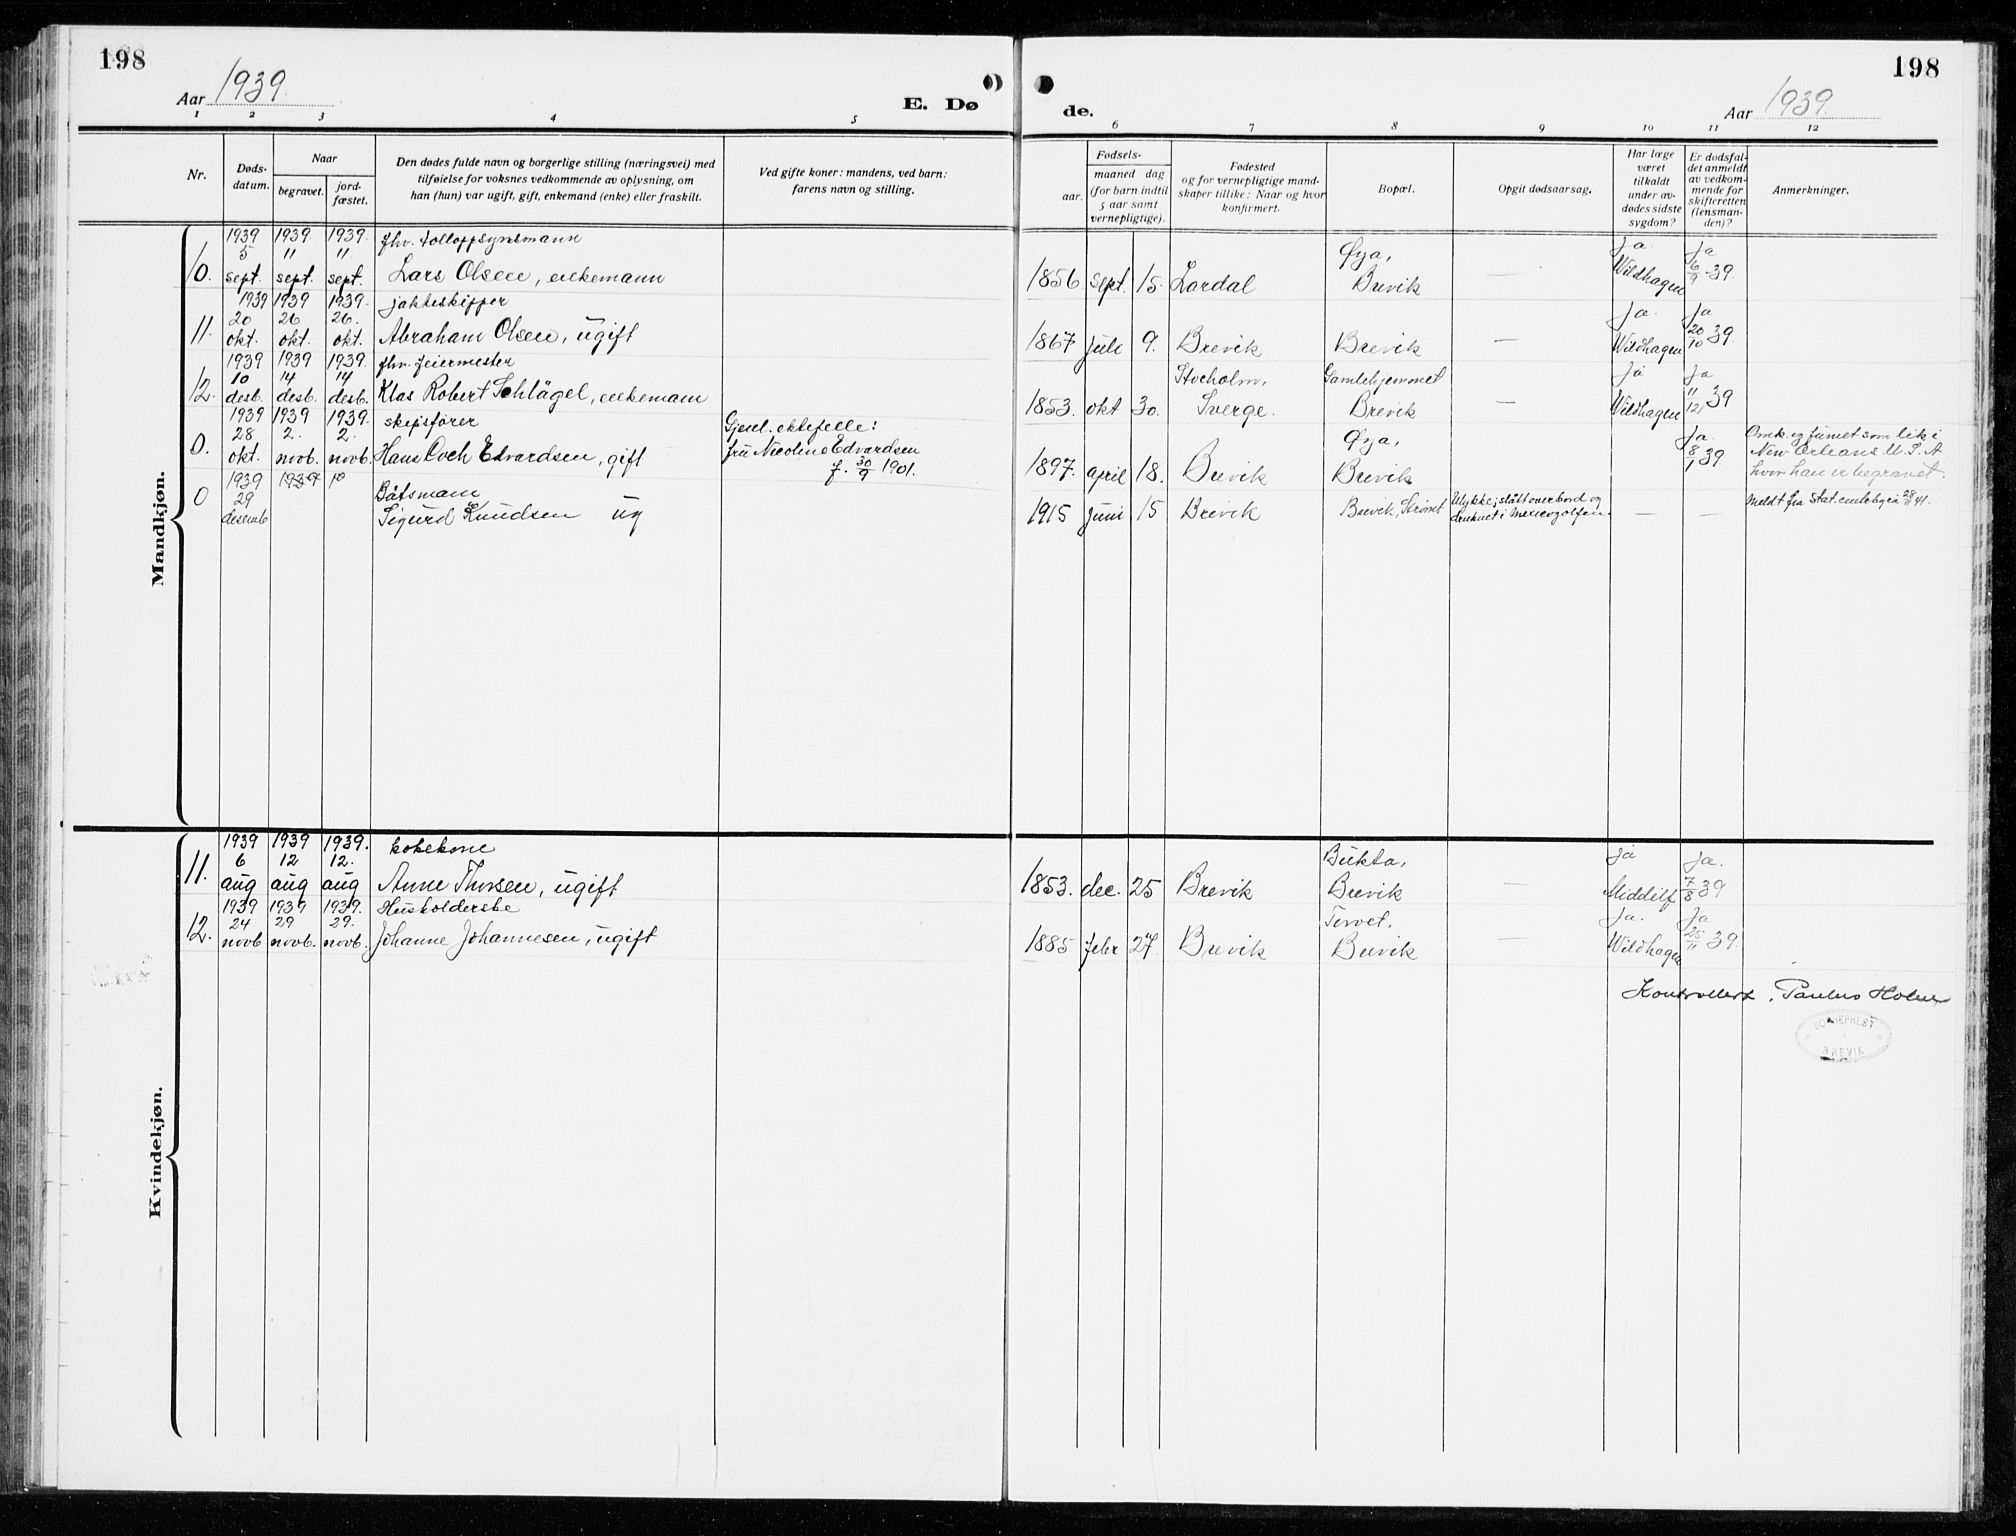 198
Aar 1939.
E. Dø
1 2 3 4 5
Nr.
Døds-
datum.
Naar
begravet.
jord-
fæstet.
Den dødes fulde navn og borgerlige stilling (næringsvei) med
tilføielse for voksnes vedkommende av oplysning, om
han (hun) var ugift, gift, enkemand (enke) eller fraskilt.
Ved gifte koner: mandens, ved barn:
farens navn og stilling.
Mandkjøn.
1939 1939. 1939. fhv. tolloppsynsmann
5 11 11.
10. sept. sept. sept. Lars Olsen, enkemann
1939 1939 1939. jakteskipper
20 26 26.
11. okt. okt. okt. Abraham Olsen, ugift
1939 1939 1939. fhv. feiermester
10 14 14
12. desb. desb. desb. Klas Robert Schlägel, enkemann
1939 1939 1939. skipsfører Gjenl. ektefelle:
28 2. 2.
0. okt. novb. novb. Hans Coch Edvardsen, gift fru Nicoline Edvardsen
f. 30/9 1901.
1939 1939
29 Båtsmann
0 desemb Sigurd Knudsen ug
Kvindekjøn.
1939 1939 1939. kokekone
6 12 12.
11. aug aug aug Anne Thorsen, ugift
1939 1939 1939. Husholderske
24 29 29.
12. novb novb. novb. Johanne Johannesen, ugift
198
Aar 1939
de.
6 7 8 9 10 11 12
Fødsels-
aar.
maaned dag
(for barn indtil
5 aar samt
vernepligtige).
Fødested
og for vernepligtige mand-
skaper tillike: Naar og hvor
konfirmert.
Bopæl.
Opgit dødsaarsag.
Har læge
været
tilkaldt
under av-
dødes sidste
sygdom?
Er dødsfal-
det anmeldt
av vedkom-
mende for
skifteretten
(lensman-
den)?
Anmerkninger.
Øya, Ja. Ja
1856. sept. 15. Lardal Brevik — Wildhagen 6/9-39.
Ja. Ja
1867 juli 9. Brevik Brevik — Wildhagen 20/10 39.
Stocholm, Gamlehjemmet Ja Ja
1853. okt 30. Sverge. Brevik — Wildhagen 11/12 39
Øya, Ja. Omk. og funnet som lik i
1897. april 18. Brevik Brevik 8/1 39 New Orleans U. S. A
hvor han er begravet.
1915 juni 15 Brevik Brevik, Strømt Ulykke; slått overbord og — — Meldt fra Stat. 28/11 41.
druknet i Mexicogolfen
Bukta, Ja Ja.
1853. dec. 25 Brevik Brevik — Middilf 7/8 39
Torvet. Ja. Ja
1885 febr 27. Brevik Brevik — Wildhagen 25/11 39.
Kontrollert. Paulus Holm
SOKNEPREST
I
BREVIK